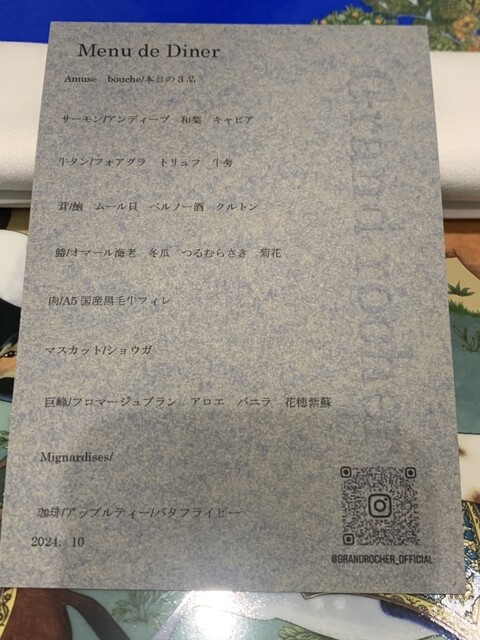 Menu de Diner
Amuse bouche/本日の3品
サーモン/アンディーブ 和梨 キャビア
牛タン/フォアグラ トリュフ 牛蒡
茸/鮑 ムール貝 ペルノー酒 クルトン
鰆/オマール海老 冬瓜 つるむらさき 菊花
肉/A5国産黒毛牛フィレ
マスカット/ショウガ
巨峰/フロマージュブラン アロエ バニラ 花穂紫蘇
Mignardises/
珈琲/アップルティー/バタフライピー
2024. 10
Grand rocher
@GRANDROCHER_OFFICIAL